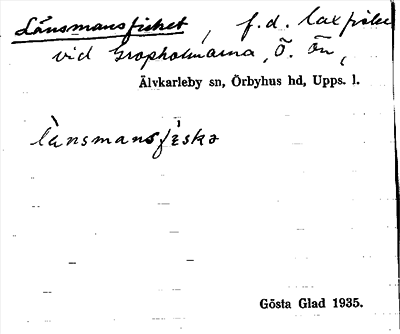 Länsmansfisket, f.d. laxfiske
vid Gropholmarna, Ö. ön,
Älvkarleby sn, Örbyhus hd, Upps. l.
lànsmansfìska
Gösta Glad 1935.